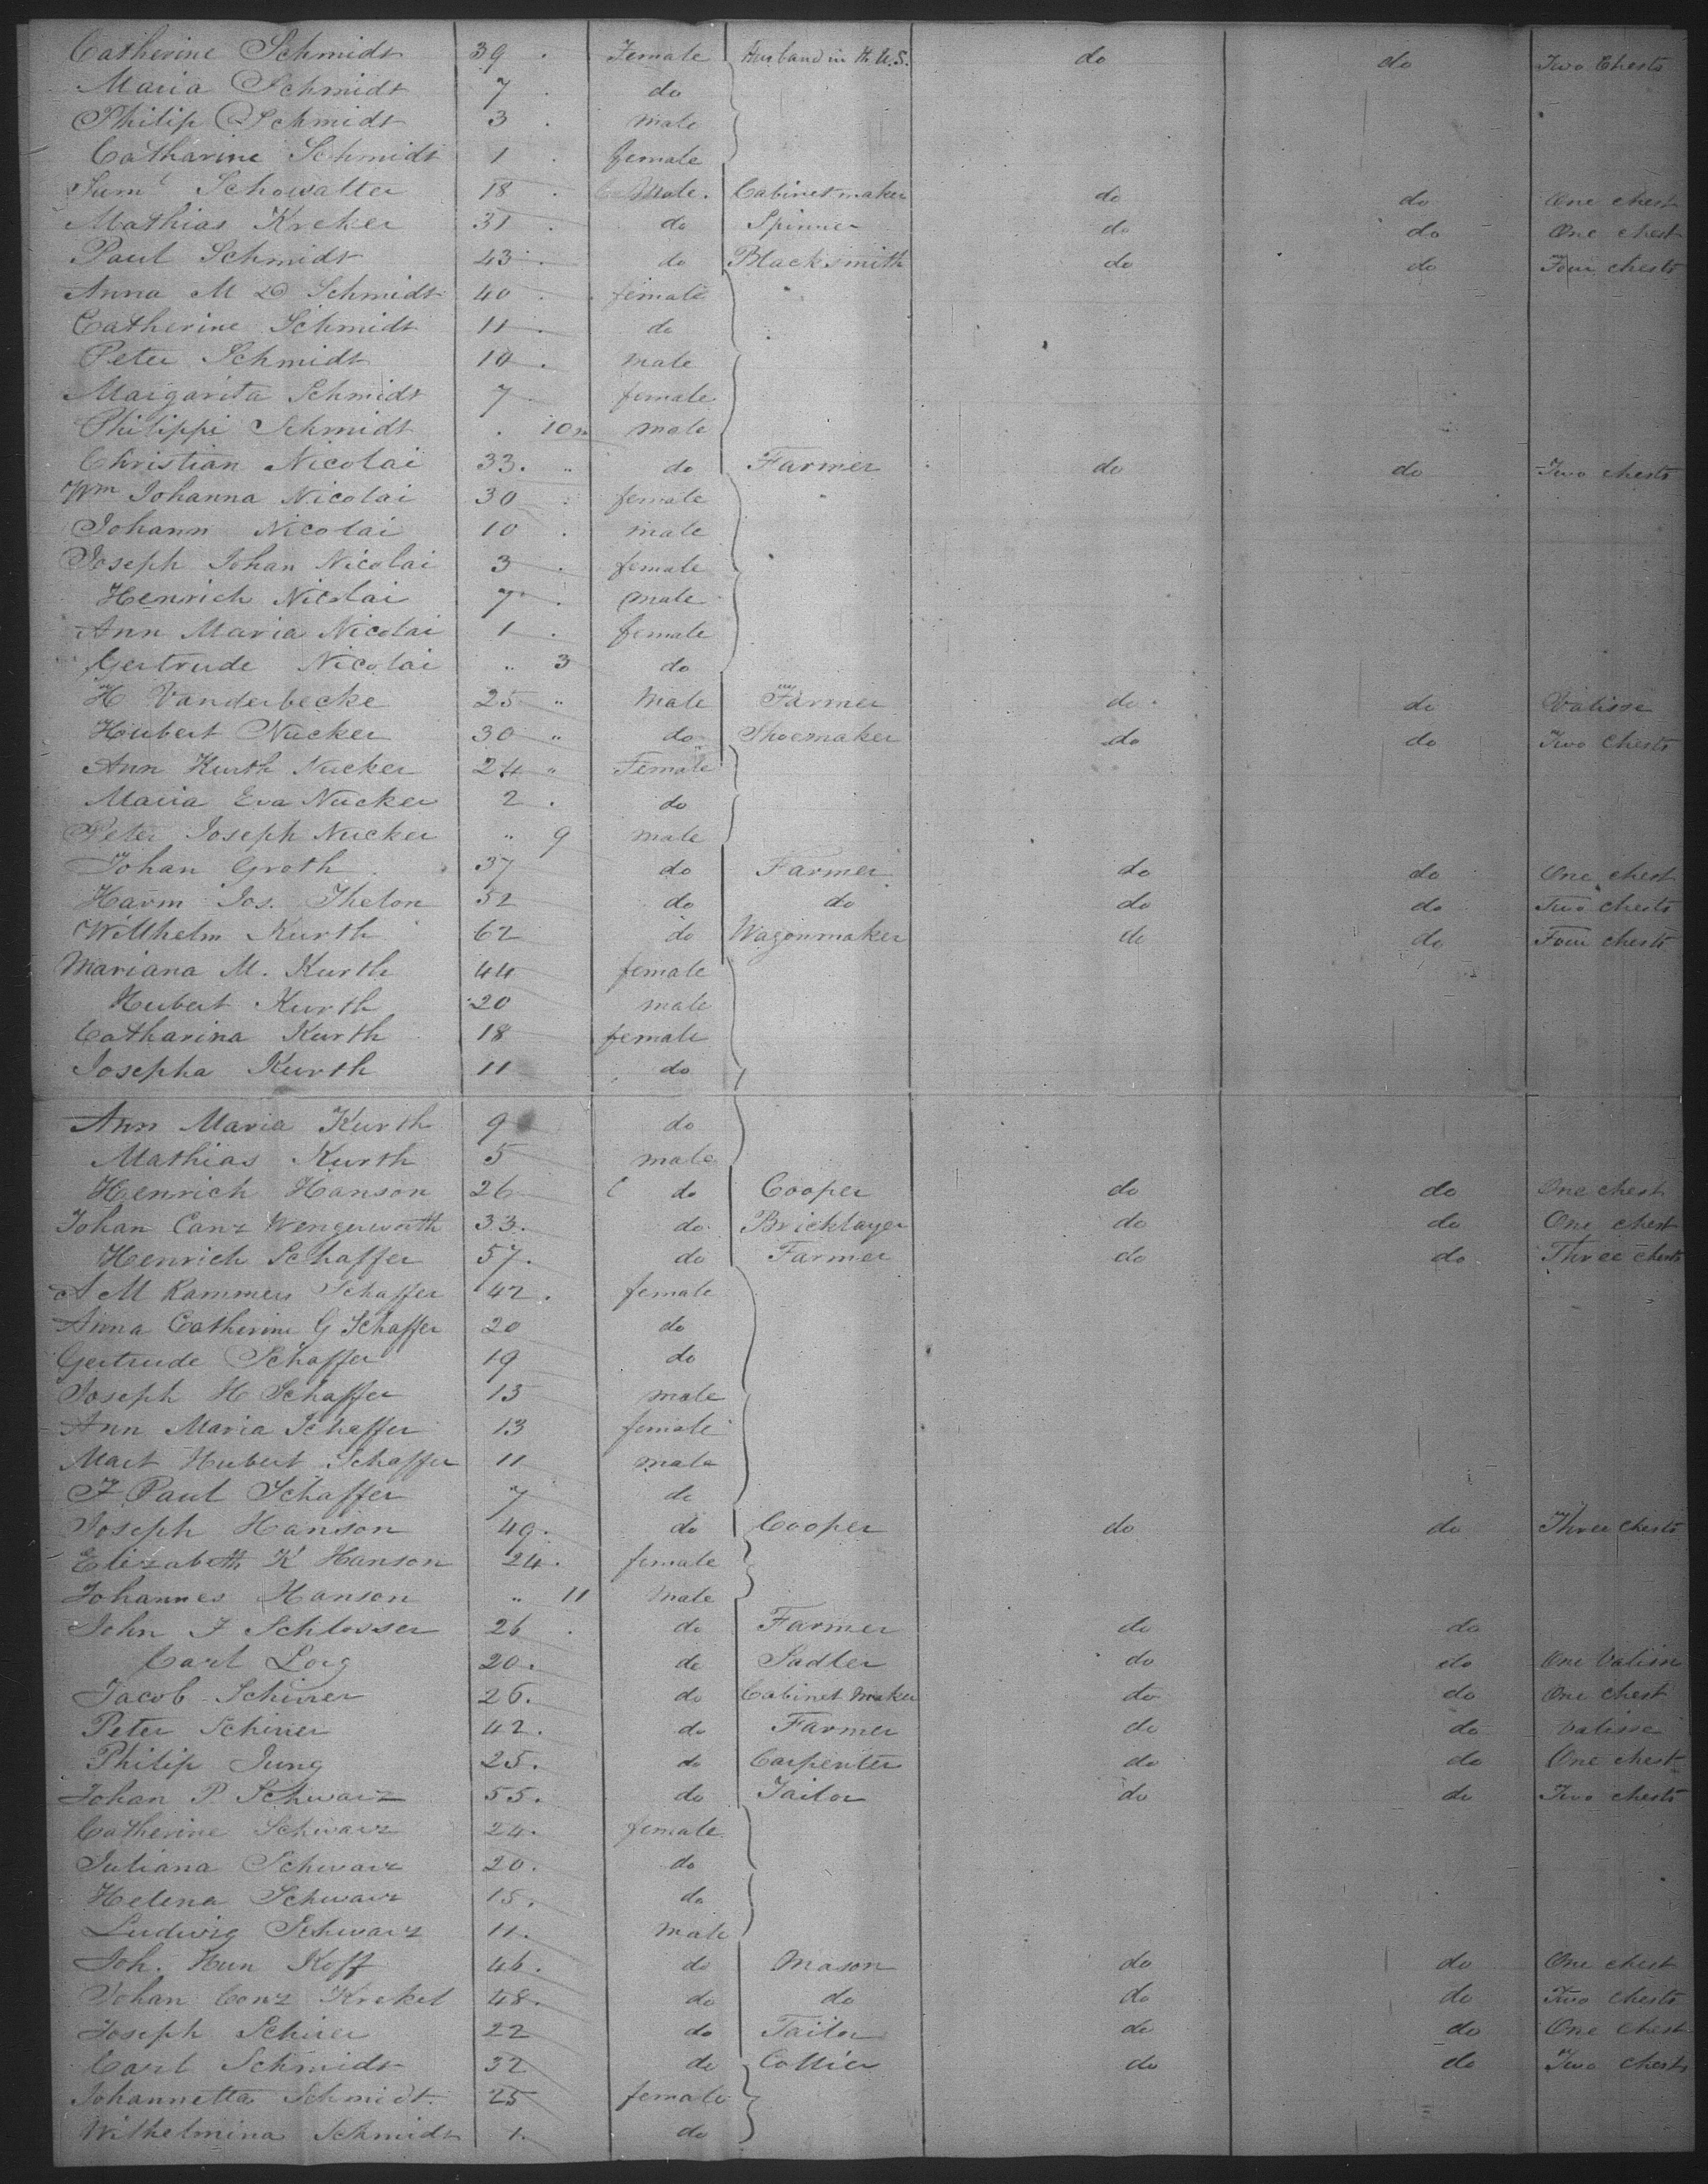 Catherine Schmidt 39 Female Husband in th U.S. do do Two Chests
Maria Schmidt 7 do
Philip Schmidt 3 male
Catharine Schmidt 1 female
Schowalter 18 Male Cabinetmaker do do One chest
Mathias Kreker 31 do Spinner do do One chest
Paul Schmidt 43 do Blacksmith do do Four chests
Anna M D Schmidt 40 female
Catherine Schmidt 11 do
Peter Schmidt 10 male
Margarita Schmidt 7 female
Philippi Schmidt 10 male
Christian Nicolai 33 do Farmer do do Two chests
Wm Johanna Nicolai 30 female
Johann Nicolai 10 male
Joseph Johan Nicolai 3 female
Henrich Nicolai 7 male
Ann Maria Nicolai 1 female
Gertrude Nicolai " 3 do
H Vanderbecke 25 " Male Farmer do do Valisse
Hubert Nucker 30 " do Shoemaker do do Two Chests
Ann Kurth Nucker 24 " Female
Maria Eva Nucker 2 do
Peter Joseph Nucker " 9 male
Johan Groth 37 do Farmer do do One chest
Harm Jos. Thelon 52 do do do do Two chests
Willhelm Kurth 62 do Wagonmaker do do Four chests
Mariana M. Kurth 44 female
Hubert Kurth 20 male
Catharina Kurth 18 female
Josepha Kurth 11 do
Ann Maria Kurth 9 do
Mathias Kurth 5 male
Henrich Hanson 26 do Cooper do do One chest
Johan Canz Wengerwath 33 do Bricklayer do do One chest
Henrich Schaffer 57 do Farmer do do Three chests
A M Kammers Schaffer 42 female
Anna Catherine G Schaffer 20 do
Gertrude Schaffer 19 do
Joseph H Schaffer 15 male
Ann Maria Schaffer 13 female
Mart Hubert Schaffer 11 male
F Paul Schaffer 7 do
Joseph Hanson 49 do Cooper do do Three chests
Elizabeth K Hanson 24 female
Johannes Hanson " 11 Male
John F Schlosser 26 do Farmer do do
Carl Lorg 20 do Sadler do do One Valisse
Jacob Schirer 26 do Cabinet Maker do do One chest
Peter Schirer 42 do Farmer do do Valisse
Philip Jung 25 do Carpenter do do One chest
Johan P. Schwarz 55 do Tailor do do Two chests
Catherine Schwarz 24 female
Juliana Schwarz 20 do
Helena Schwarz 15 do
Ludwig Schwarz 11 Male
Joh. Hen Koff 46 do Mason do do One chest
Johan Conz Krekel 48 do do do do Two chests
Joseph Schirer 22 do Tailor do do One chest
Carl Schmidt 32 do Collier do do Two chests
Johannetta Schmidt 25 female
Wilhelmina Schmidt 1 do